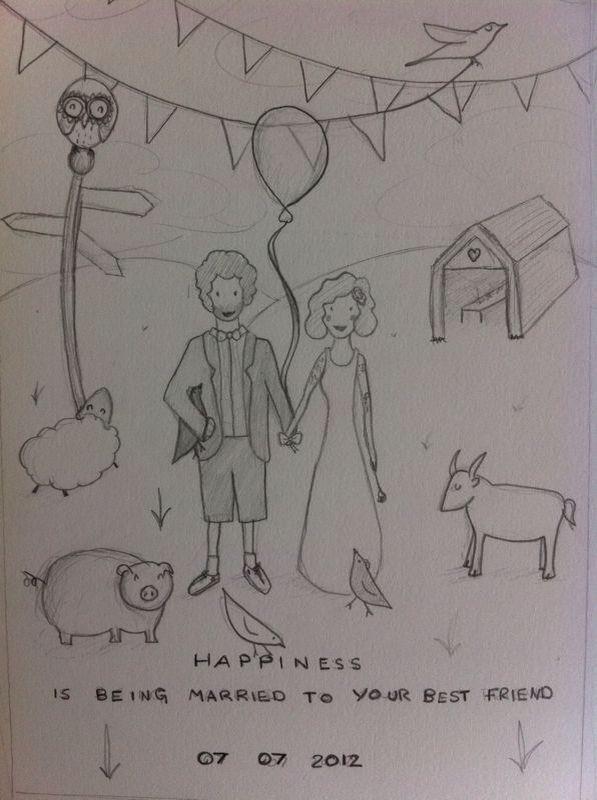 HAPPINESS
IS BEING MARRIED TO YOUR BEST FRIEND
07 07 2012